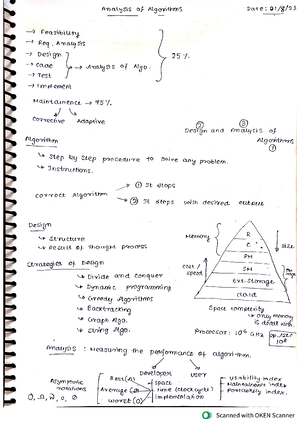 Analysis of Algorithms
Date: 01/8/23
→ Feasibility
→ Req. Analysis
→ Design
→ Code → Analysis of Algo.
→ Test
→ Implement
25%
Maintainence → 75%
Corrective Adaptive
② ③
Design and Analysis of
Algorithms
①
Algorithm
↳ Step by Step procedure to solve any problem.
↳ Instructions.
Correct Algorithm → ① It stops
→ ② It stops with desired output
Design
↳ Structure
↳ Result of thought process
Strategies of Design
↳ Divide and conquer
↳ Dynamic programming
↳ Greedy Algorithms
↳ Backtracking
↳ Graph Algo.
↳ String Algo.
Memory
R
C
PM
SM
Ext. Storage
Cloud
Cost/
Speed
size
Space complexity
↳ Only memory
is dealt with.
Processor: 10⁶ GHz
Analysis : Measuring the performance of algorithm.
Developer User
Asymptotic
notations
Best(Ω)
Average(θ)
Worst(O)
Space
Time (clock cycles)
Implementation
Usability index
Maintainence index
Portability index.
Scanned with OKEN Scanner